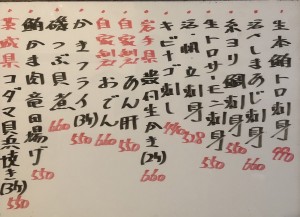 生本鮪トロ刺身 990
活〆しまあじ刺身 550
糸ヨリ鯛刺身 550
生トロサーモン刺身 550
活・帆立刺身 528
キビナゴ刺し 490
岩手県 豊丹生かき(2ケ) 660
自家製 あん肝 660
自家製 おでん 550
かきフライ(3ケ) 550
磯つぶ貝煮 660
鮪かま肉竜田揚げ 550
茨城県 コダマ貝兵焼き(3ケ) 550